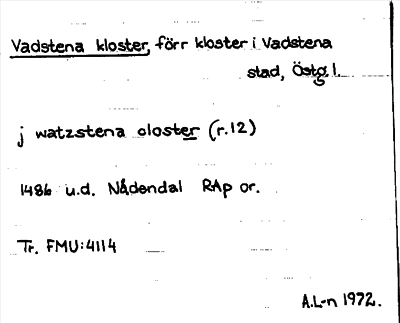 Vadstena kloster, förr kloster i Vadstena
stad, Östg. l.
j watzstena closter (r.12)
1486 u.d. Nådendal RAp or.
Tr. FMU:4114
A.L-n 1972.